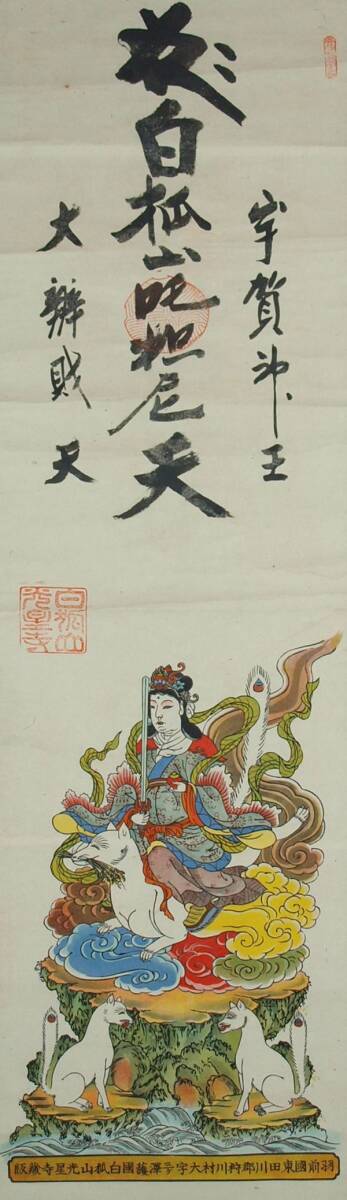 宇賀神王
白狐山吒枳尼天
大辨財天
白狐山
光星寺
羽前國東田川郡狩川村大字三ケ澤護國白狐山光星寺藏版